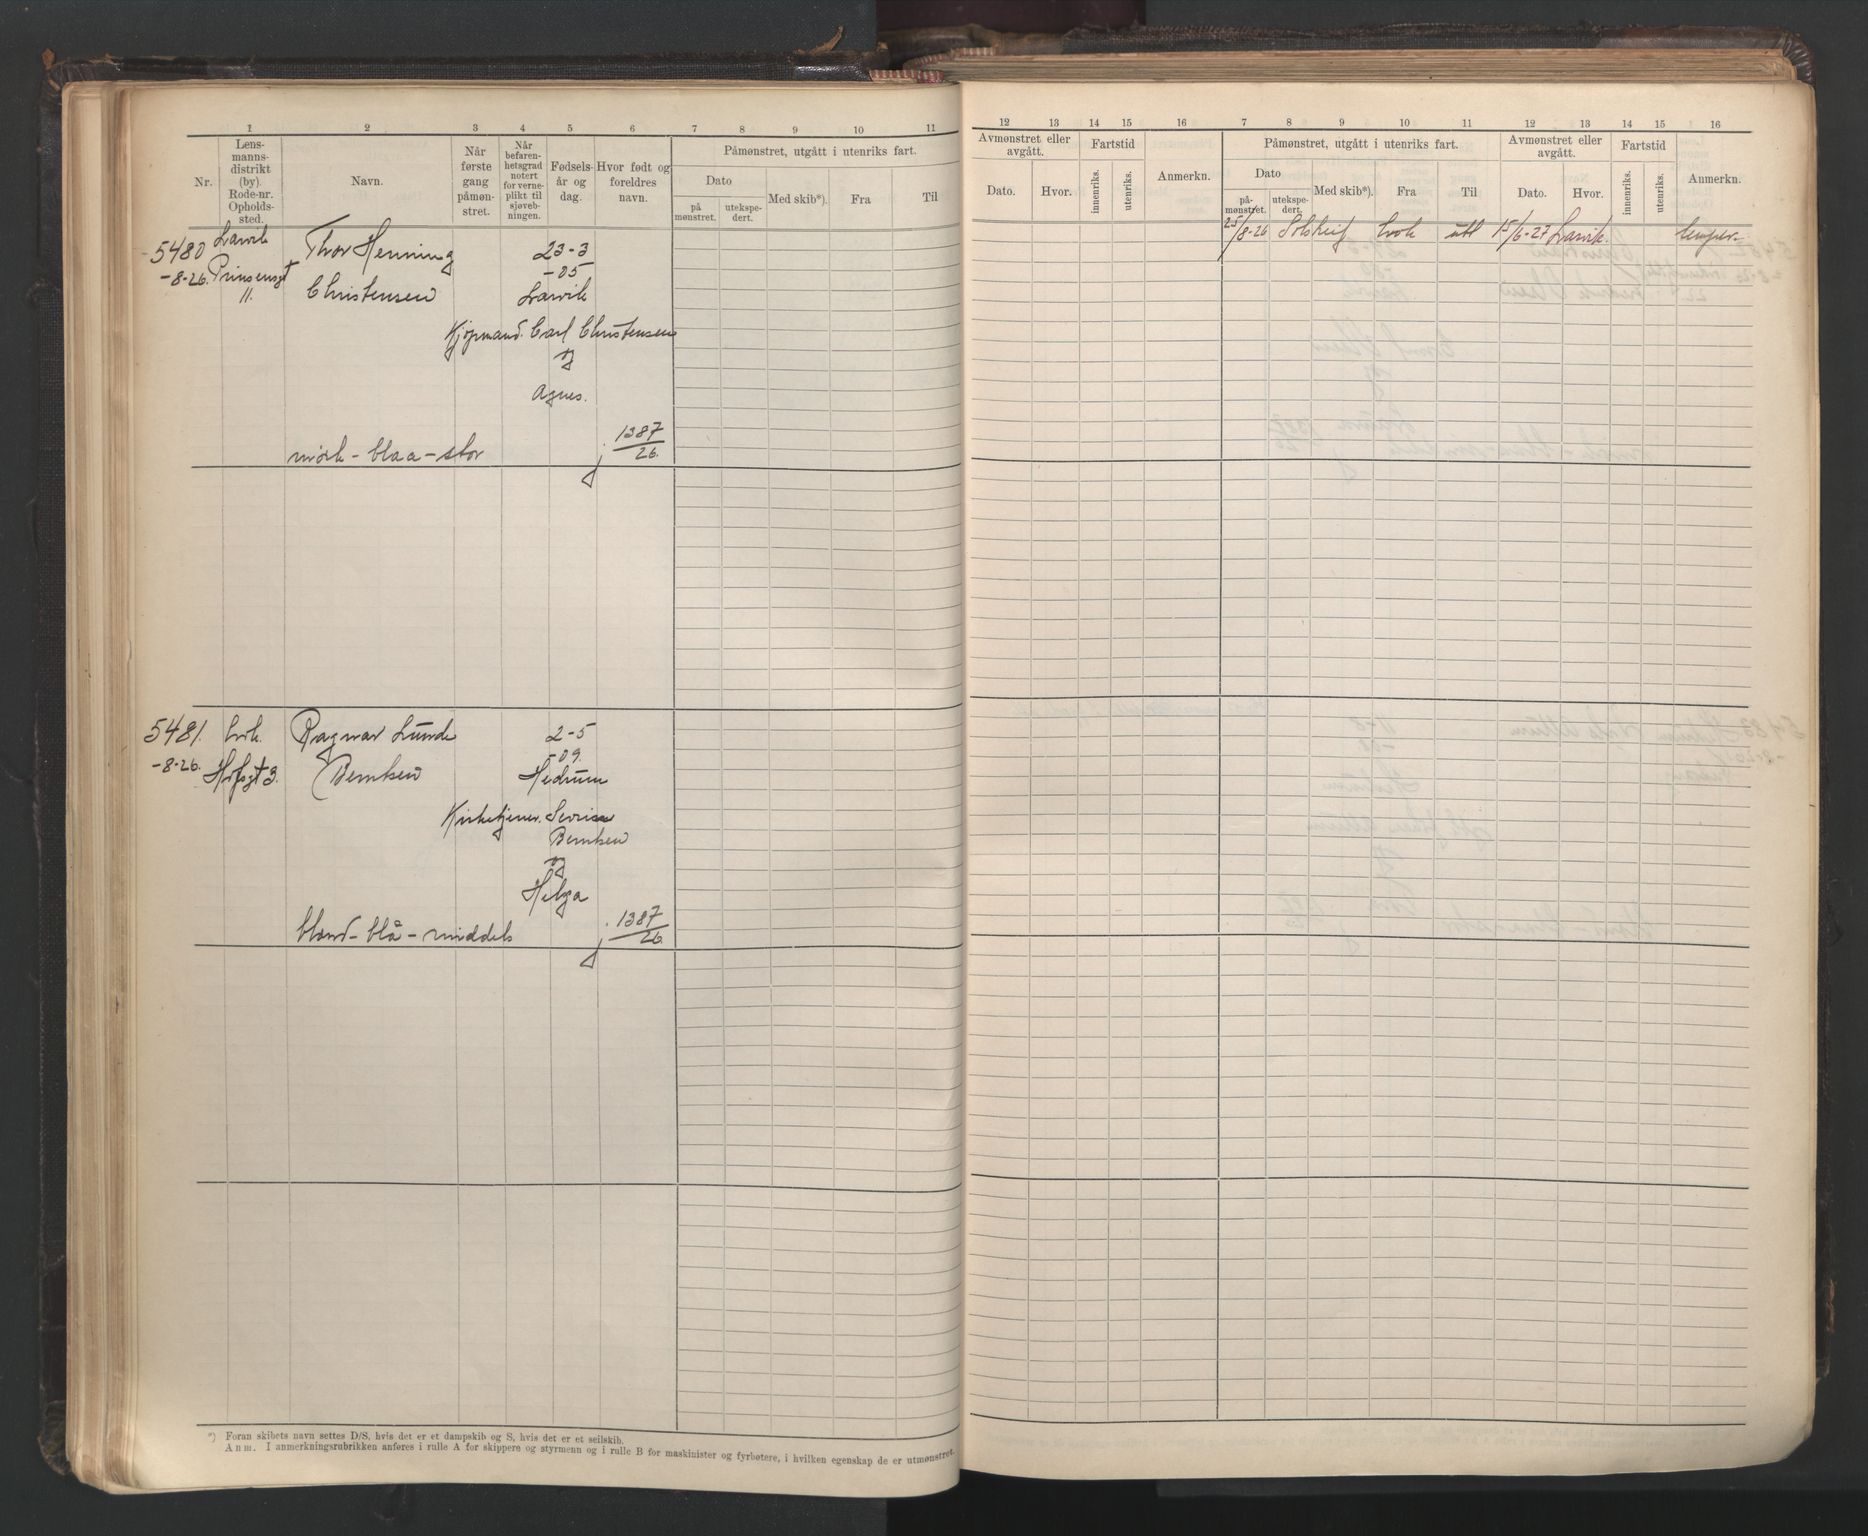 1 2 3 4 5 6 7 8 9 10 11
Nr.
Lens-
manns-
distrikt
(by).
Rode-nr.
Opholds-
sted.
Navn.
Når
første
gang
påmøn-
stret.
Når
befaren-
hetsgrad
notert
for verne-
plikt til
sjøveb-
ningen.
Fødsels-
år og
dag.
Hvor født og
foreldres
navn.
Påmønstret, utgått i utenriks fart.
Dato
på
mønstret.
utekspe-
dert.
Med skib*).
Fra
Til
5480 Larvik Thor Henning 23-3
-8-26. Prinsensgt -05
11. Christensen Larvik
Kjøpmand. Carl Christensen
og
Agnes.
mørk - blaa - stor 1387/26.
5481. Lvk. Ragnar Lunde 2-5
-8-26. -09.
Berntsen Hedrum
Kirketjener.
Berntsen
og
Helga
blond - blå - middels 1387/26.
*) Foran skibets navn settes D/S, hvis det er et dampskib og S, hvis det er et seilskib.
Anm. I anmerkningsrubrikken anføres i rulle A for skippere og styrmenn og i rulle B for maskinister og fyrbøtere, i hvilken egenskap de er utmønstret.
12 13 14 15 16 7 8 9 10 11 12 13 14 15 16
Avmønstret eller
avgått.
Dato. Hvor.
Fartstid
innenriks.
utenriks.
Anmerkn.
Påmønstret, utgått i utenriks fart.
Dato
på-
mønstret.
utekspe-
dert.
Med skib*).
Fra
Til
Avmønstret eller
avgått.
Dato. Hvor.
Fartstid
innenriks.
utenriks.
Anmerkn.
25/8-26 Lvk utl 15/6-27 Larvik.